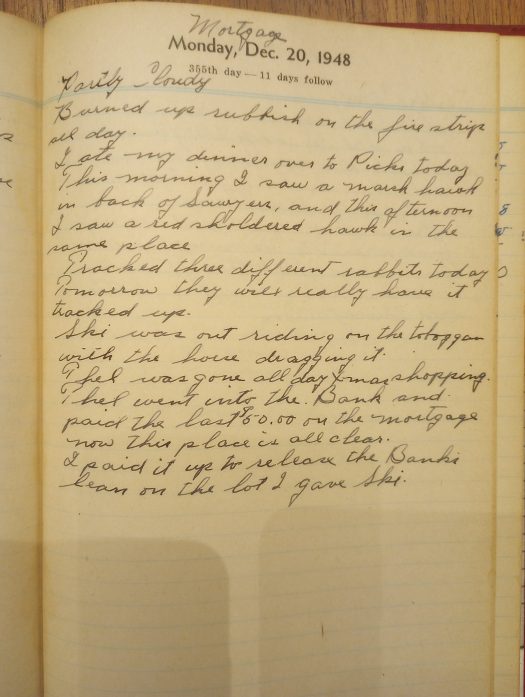 Mortgage
Monday, Dec. 20, 1948
355th day — 11 days follow
Partly Cloudy
Burned up rubbish on the fire strip
all day.
I ate my dinner over to Picks today
This morning I saw a marsh hawk
in back of Sawyers, and this afternoon
I saw a red sholdered hawk in the
same place
Tracked three different rabbits today
Tomorrow they will really have it
tracked up.
Ski was out riding on the toboggan
with the horse dragging it
Thel was gone all day Xmas shopping.
Thel went into the Bank and
paid the last $50.00 on the mortgage
now this place is all clear.
I paid it up to release the Banks
lean on the lot I gave Ski.